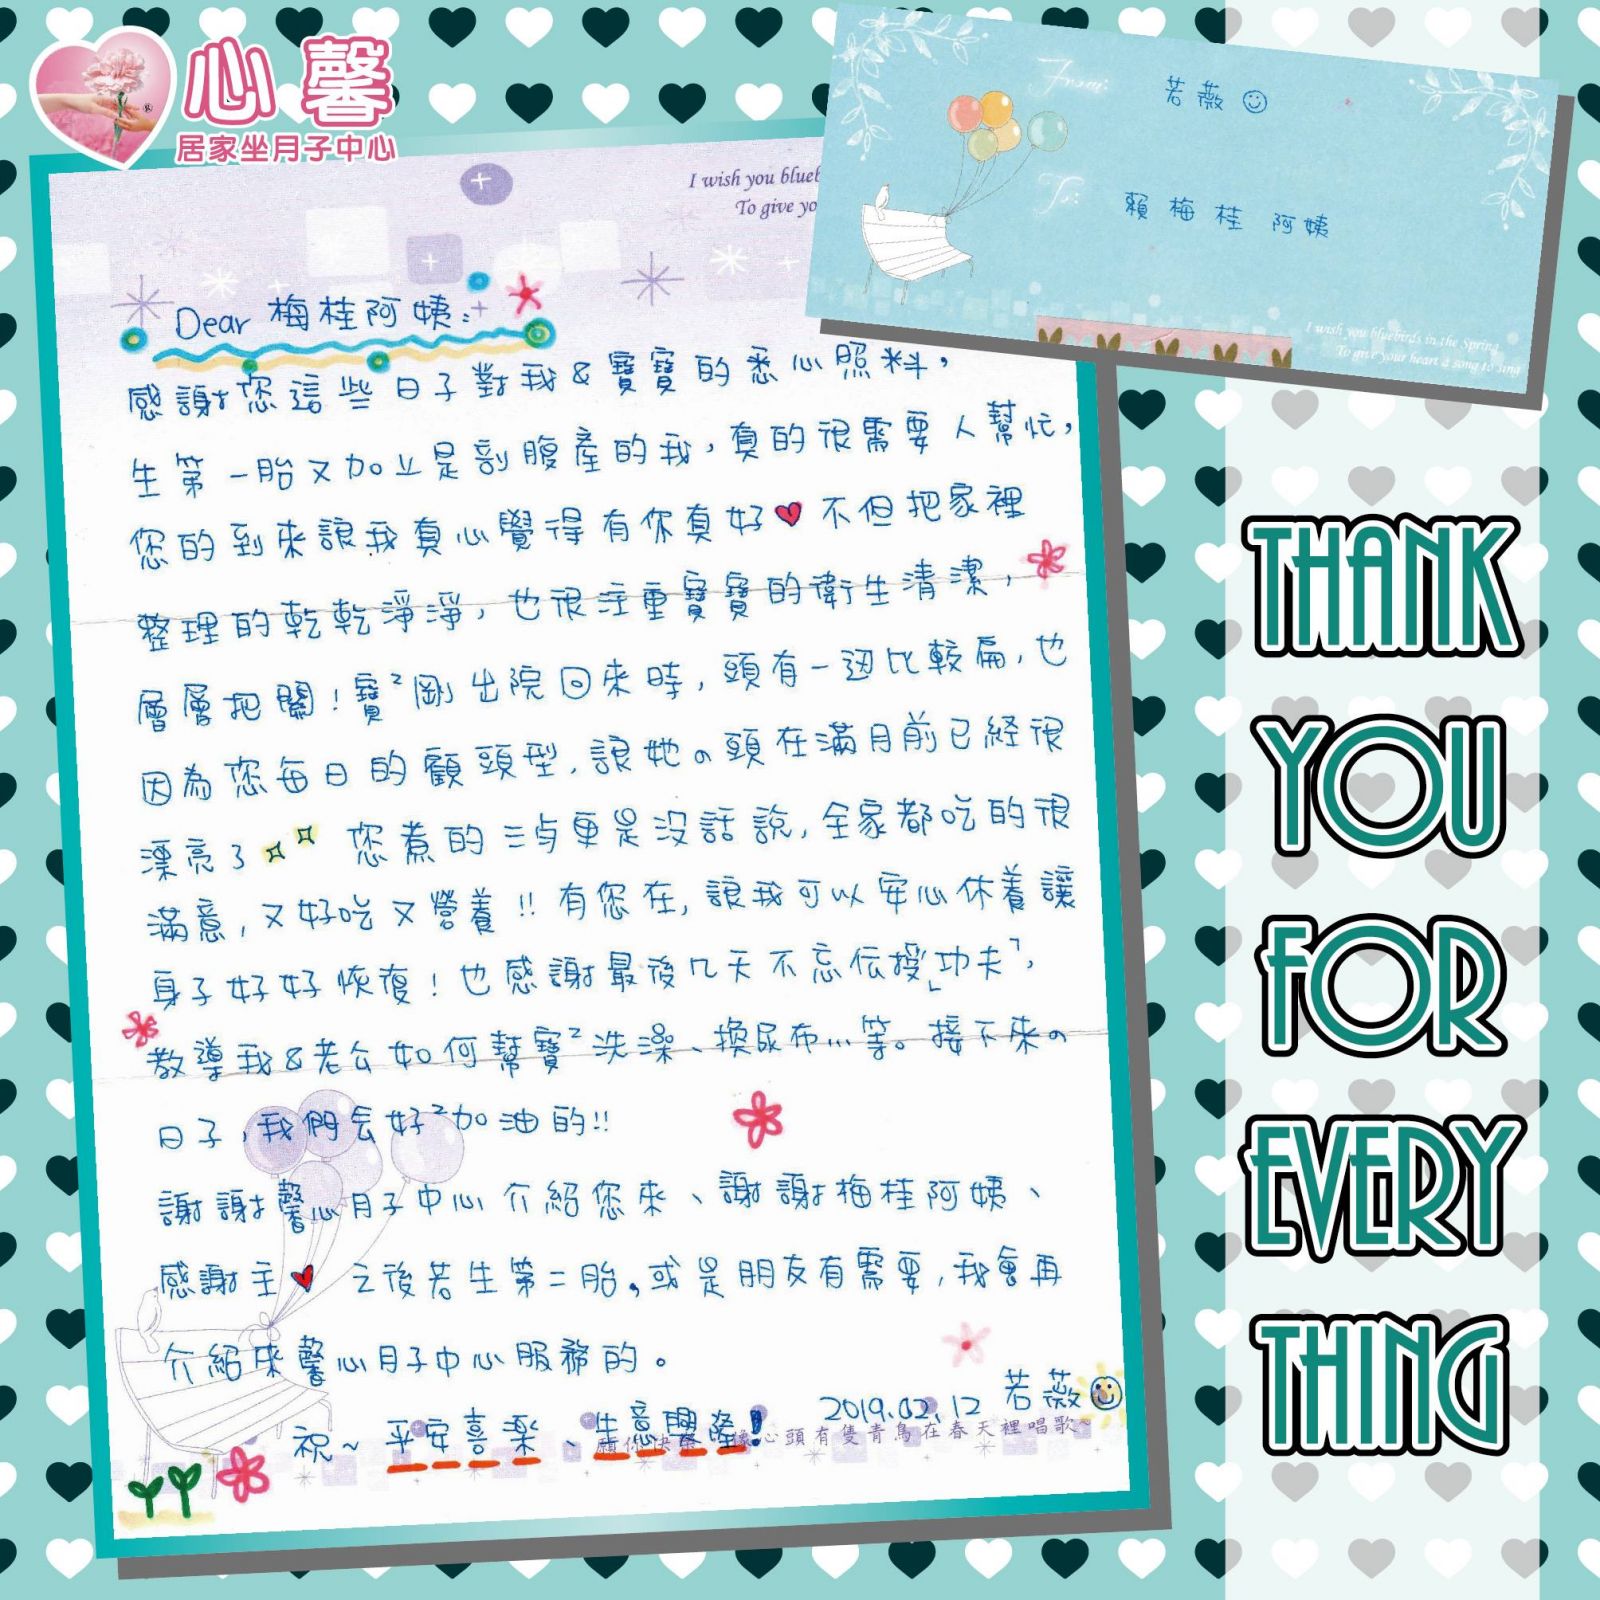 心馨
居家坐月子中心
From:
若薇
To:
賴梅桂 阿姨
I wish you bluebirds in the Spring
To give your heart a song to sing
I wish you blueb
To give yo
Dear 梅桂阿姨：
感謝您這些日子對我&寶寶的悉心照料，
生第一胎又加上是剖腹產的我，真的很需要人幫忙，
您的到來讓我真心覺得有你真好♥不但把家裡
整理的乾乾淨淨，也很注重寶寶的衛生清潔，
層層把關！寶²剛出院回來時，頭有一邊比較扁，也
因為您每日的顧頭型，讓她の頭在滿月前已経很
漂亮了 您煮的三歺更是沒話說，全家都吃的很
滿意，又好吃又營養!!有您在，讓我可以安心休養讓
身子好好恢復！也感謝最後几天不忘伝授「功夫」，
教導我&老公如何幫寶²洗澡、換尿布…等。接下來の
日子，我們会好²加油的!!
謝謝馨心月子中心介紹您來、謝謝梅桂阿姨、
感謝主♥ 之後若生第二胎，或是朋友有需要，我會再
介紹來馨心月子中心服務的。
2019.02.12 若薇
祝~ 平安喜樂、生意興隆！
心頭有隻青鳥在春天裡唱歌
THANK
YOU
FOR
EVERY
THING